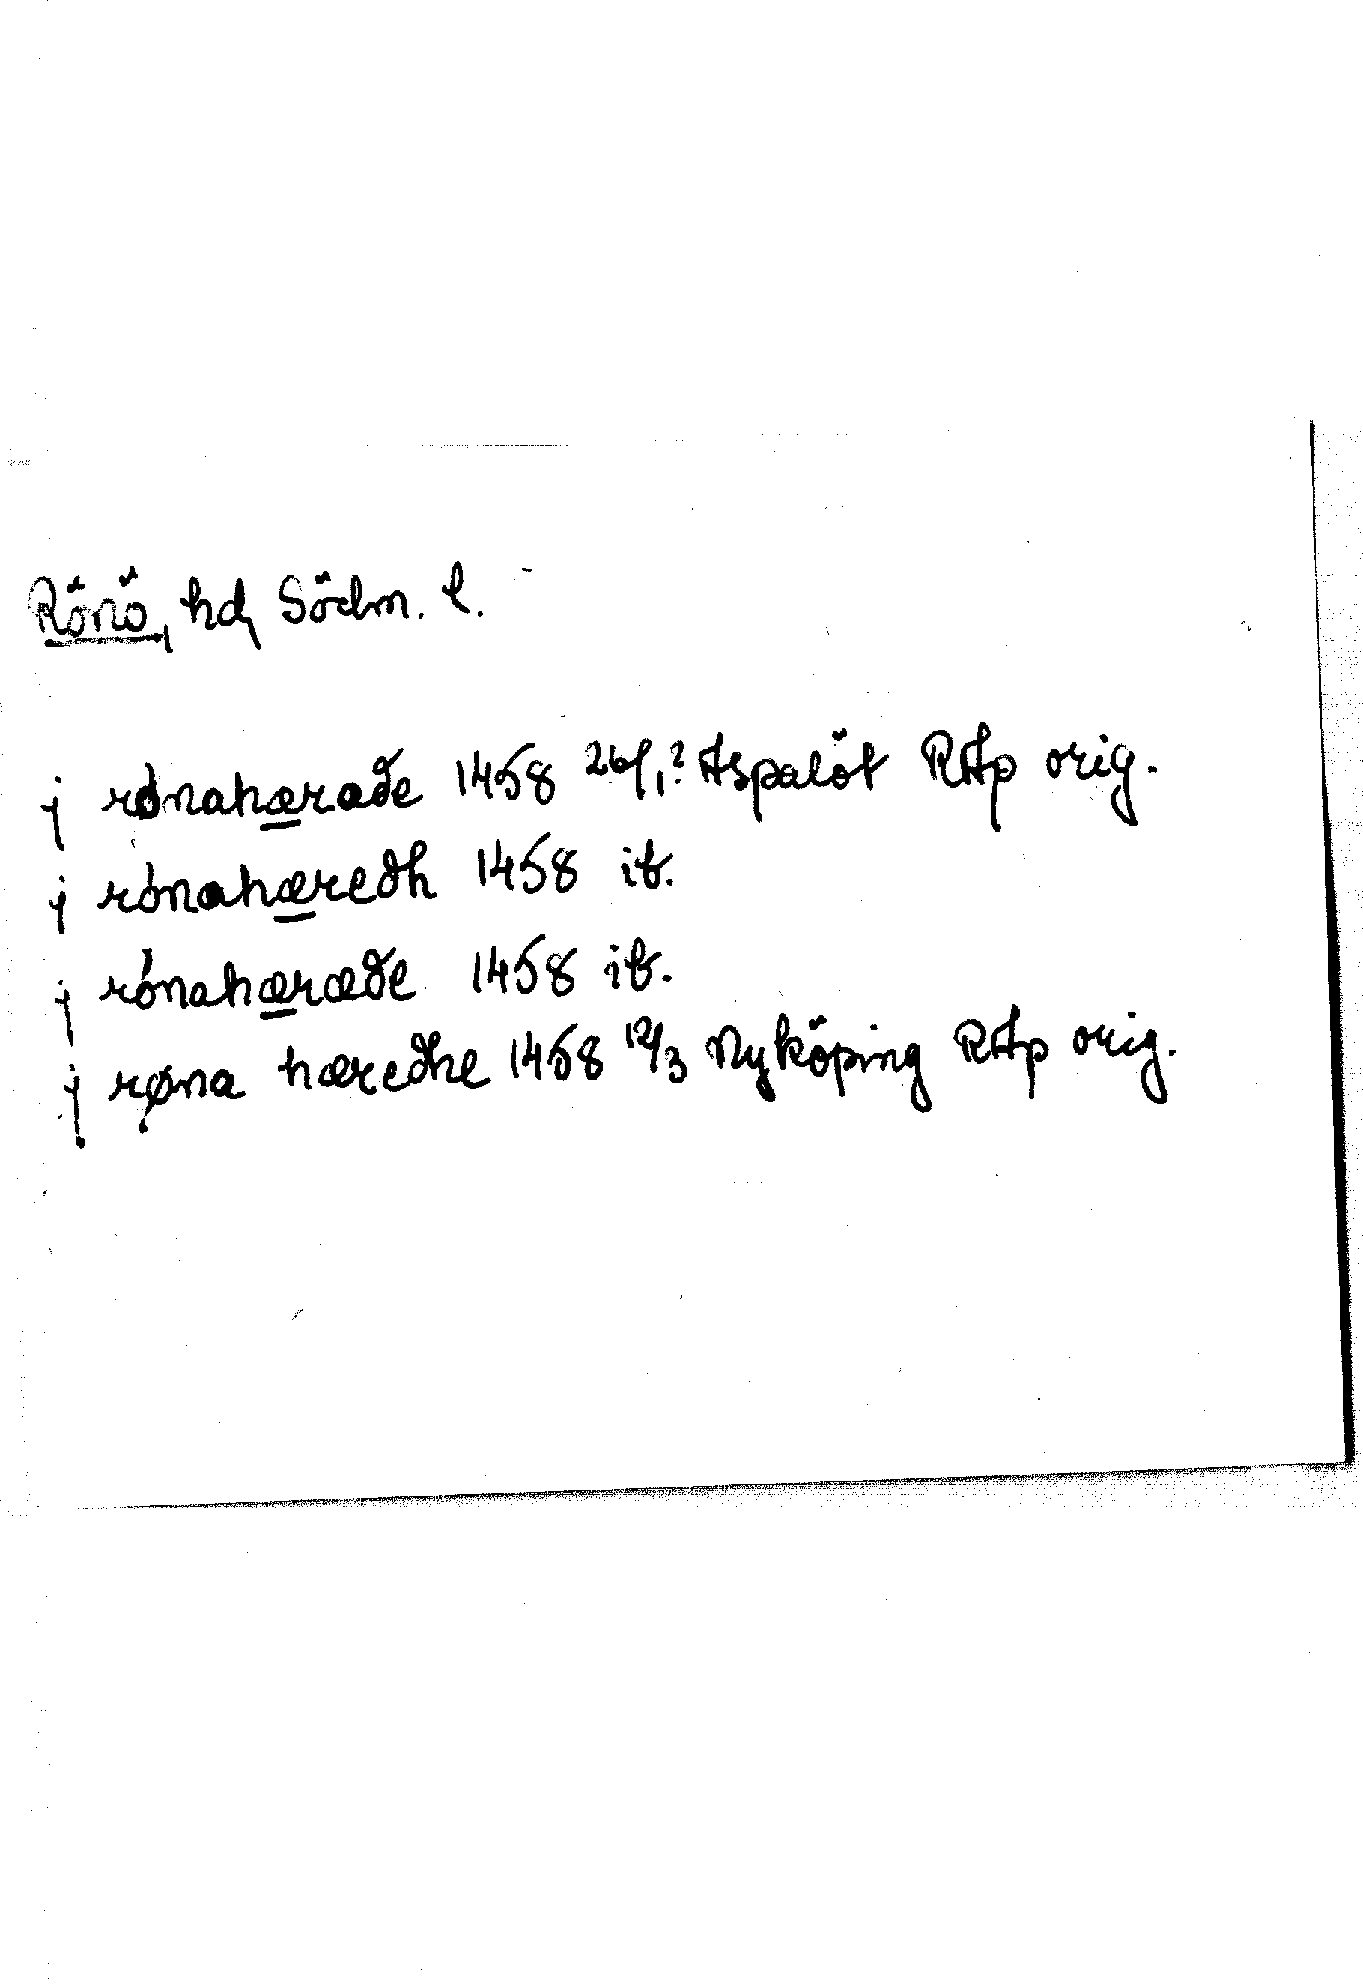 Rönö, hd, Södm. l.
j rønahæraðe 1458 26/1? Aspalöt RAp orig.
j rónahæredh 1458 ib.
j rónahæræðe 1458 ib.
j røna hæredhe 1458 12/3 Nyköping RAp orig.